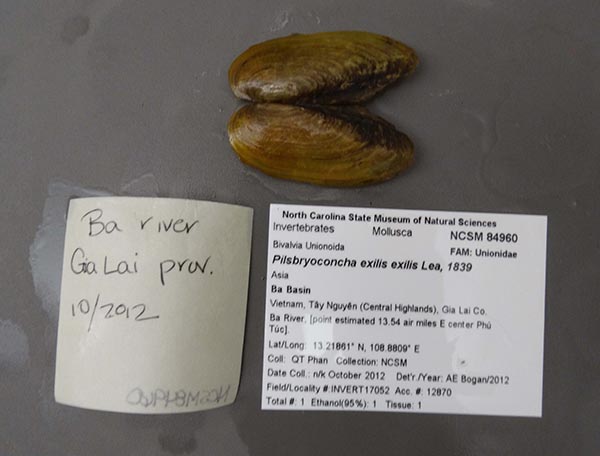 Ba river
Gia Lai prov.
10/2012
North Carolina State Museum of Natural Sciences
Invertebrates Mollusca NCSM 84960
Bivalvia Unionoida FAM: Unionidae
Pilsbryoconcha exilis exilis Lea, 1839
Asia
Ba Basin
Vietnam, Tây Nguyên (Central Highlands), Gia Lai Co.
Ba River. [point estimated 13.54 air miles E center Phú
Túc].
Lat/Long: 13.21861° N, 108.8809° E
Coll: QT Phan Collection: NCSM
Date Coll.: n/k October 2012 Det'r./Year: AE Bogan/2012
Field/Locality #:INVERT17052 Acc. #: 12870
Total #: 1 Ethanol(95%): 1 Tissue: 1